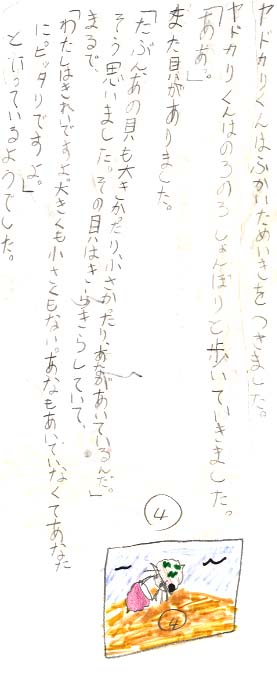 ヤドカリくんはふかいためいきをつきました。
「ああ。」
ヤドカリくんはのろのろしょんぼりと歩いていきました。
また貝がありました。
「たぶんあの貝も大きかったり、小さかったり、あなが、あいているんだ。」
そう思いました。その貝はきらきらしていて、
まるで、
「わたしはきれいですよ。大きくも小さくもない。あなもあいていなくてあなた
にピッタリですよ。」
と言っているようでした。
④
④